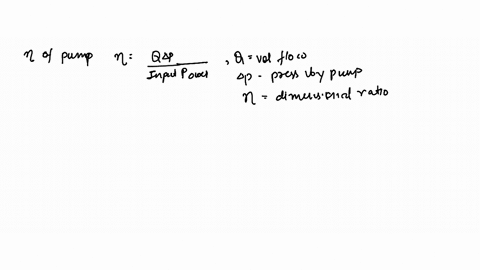 η of pump η: QΔp / Input Power , Q = vol flow
Δp - press by pump
η = dimensional ratio